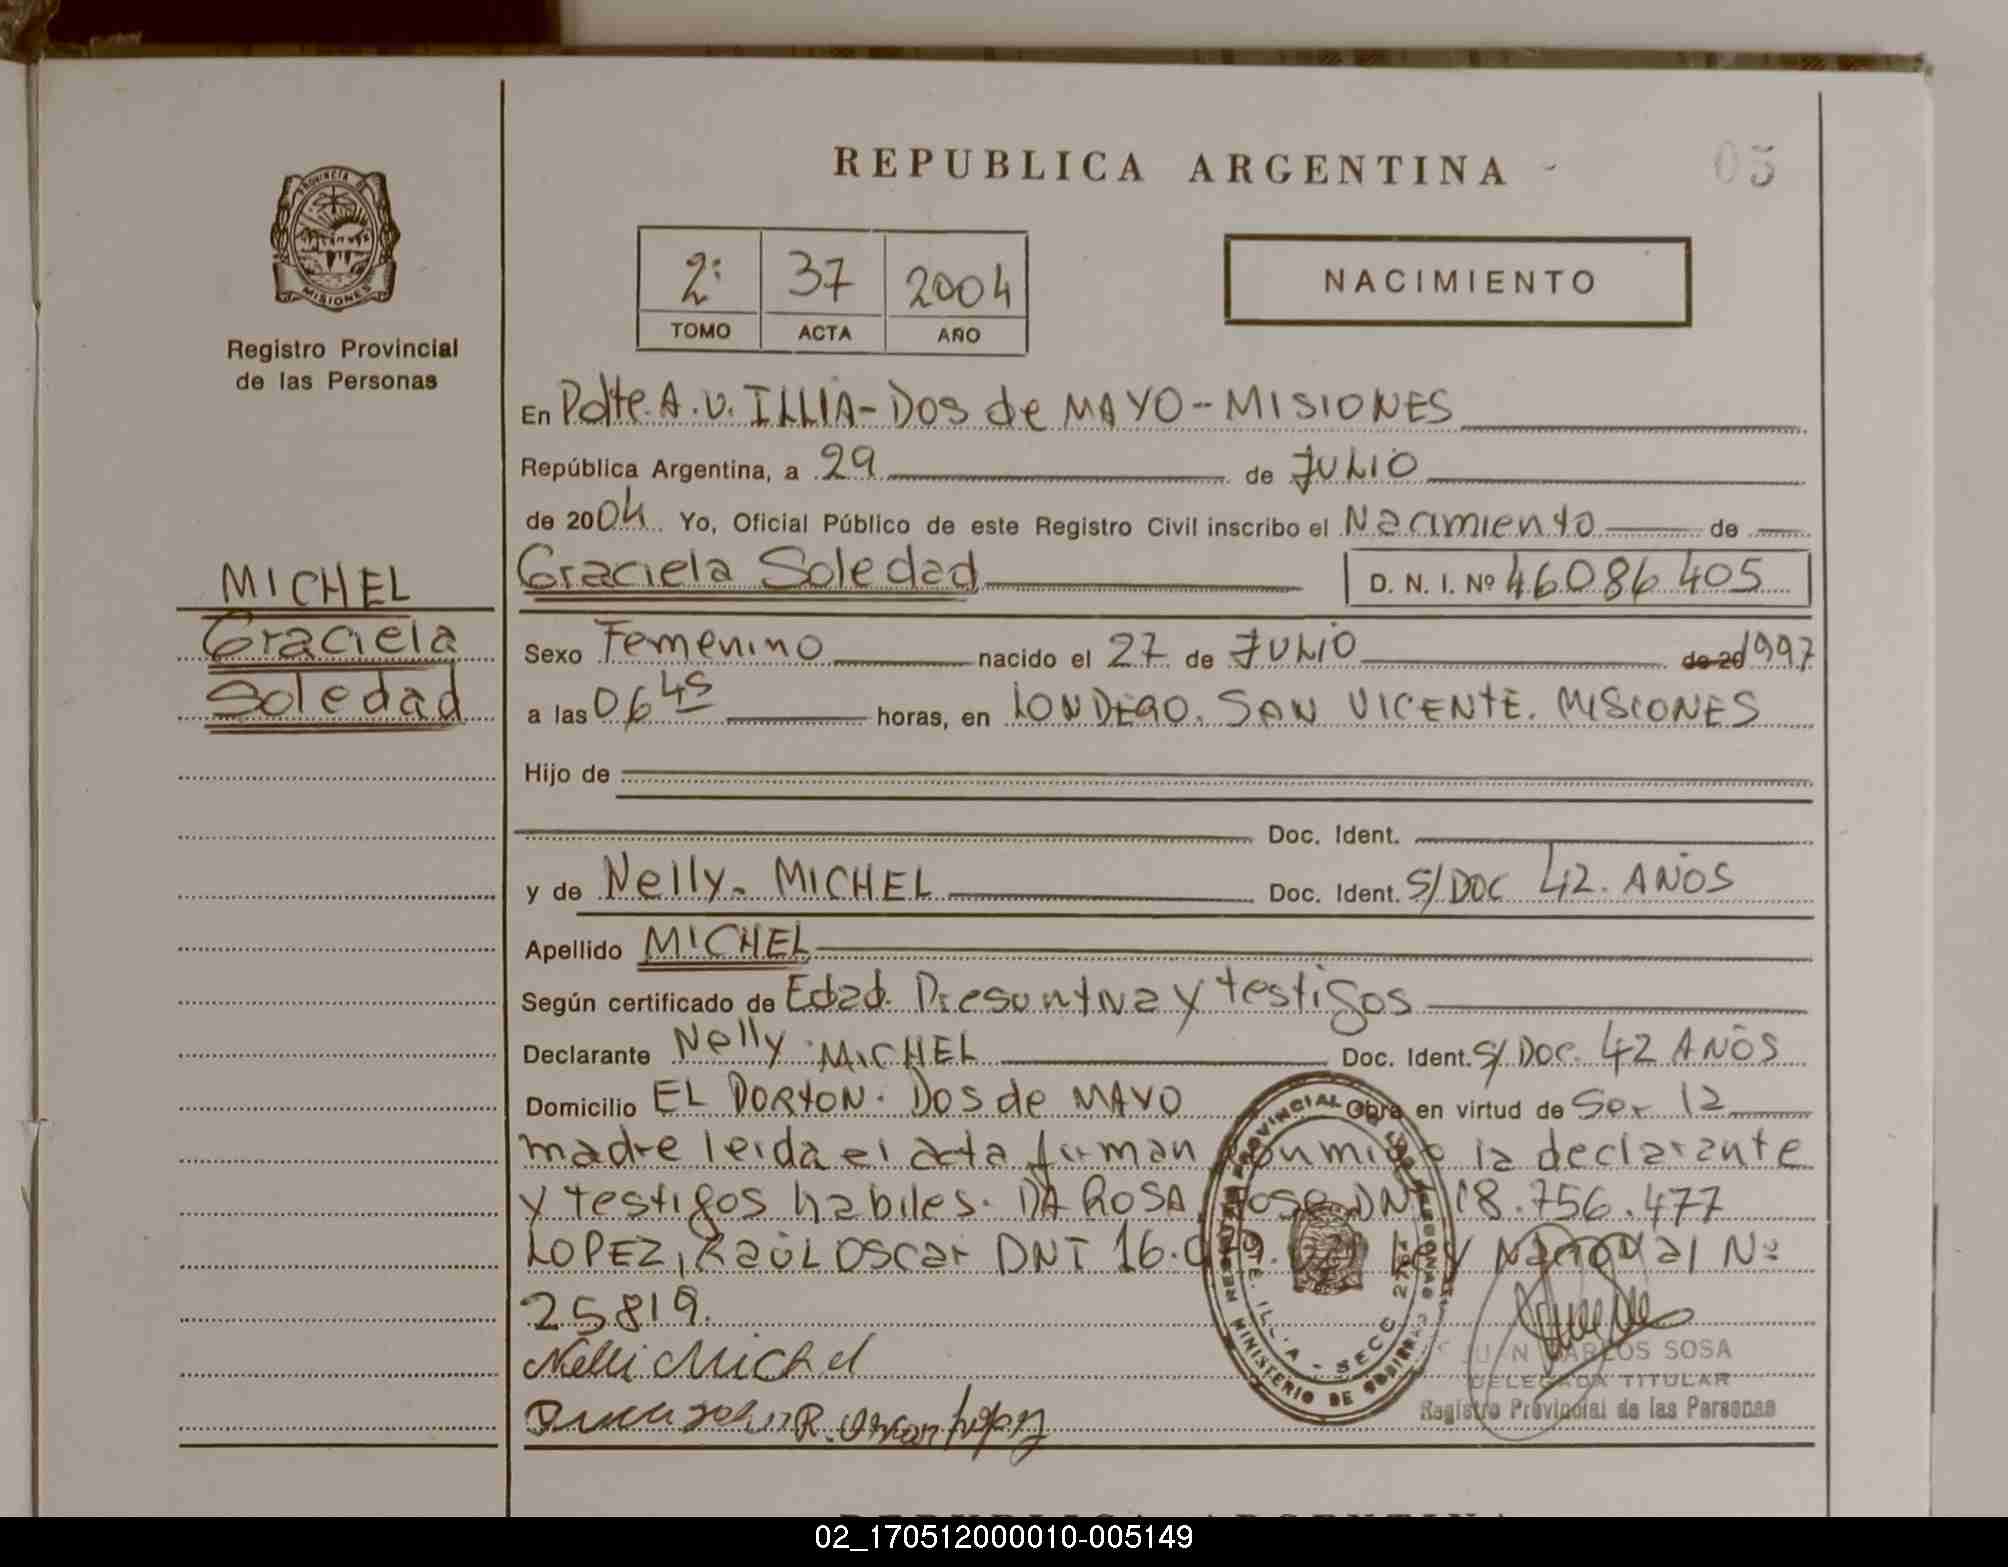 REPUBLICA ARGENTINA
05
PROVINCIA DE
MISIONES
Registro Provincial
de las Personas
2: 37 2004
TOMO ACTA AÑO
NACIMIENTO
En Pdte. A. U. ILLIA - DOS de MAYO - MISIONES
República Argentina, a 29 de JULIO
de 2004 Yo, Oficial Público de este Registro Civil inscribo el Nacimiento de
Graciela Soledad D. N. I. Nº 46086.405
MICHEL
Graciela
Soledad
Sexo Femenino nacido el 27 de JULIO de 20 1997
a las 06 45 horas, en SAN VICENTE. MISIONES
Hijo de
Doc. Ident.
y de Nelly. MICHEL Doc. Ident. S/DOC 42. AÑOS
Apellido MICHEL
Según certificado de Edad. Presuntiva y testigos
Declarante Nelly MICHEL Doc. Ident. S/ Doc. 42 AÑOS
Domicilio EL DORTON. DOS de MAYO Obra en virtud de Ser 12
madre leida el acta firman conmigo la declarante
y testigos habiles. DA ROSA, Jose DNI 18.756.477
LOPEZ, RAÚL OSCAR DNI 16. Ley Nacional Nº
25819.
Nelli Michel
R. Oscar Lopez
JUAN CARLOS SOSA
DELEGADA TITULAR
Registro Provincial de las Personas
REPUBLICA ARGENTINA
02_170512000010-005149